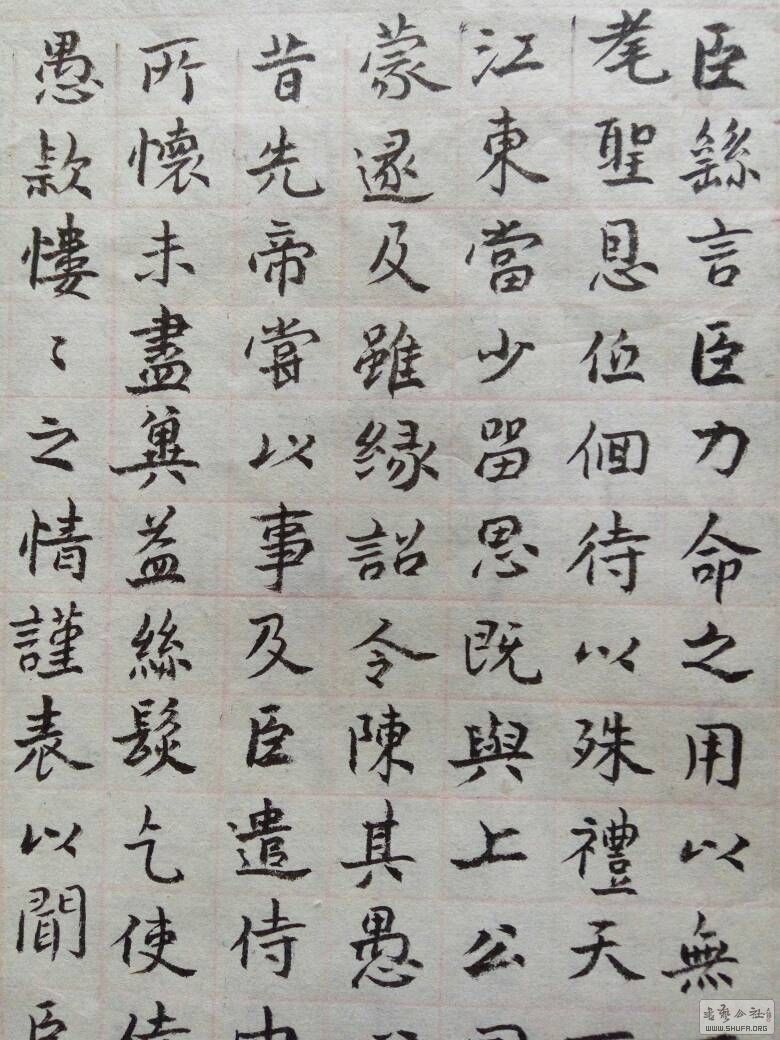 臣繇言臣力命之用以無
耄聖恩低徊待以殊禮天
江東當少留思既與上公
蒙遂及雖緣詔令陳其愚
昔先帝嘗以事及臣遣侍中
所懷未盡冀益絲髮乞使侍
愚款慺〻之情謹表以聞臣
WWW.SHUFA.ORG